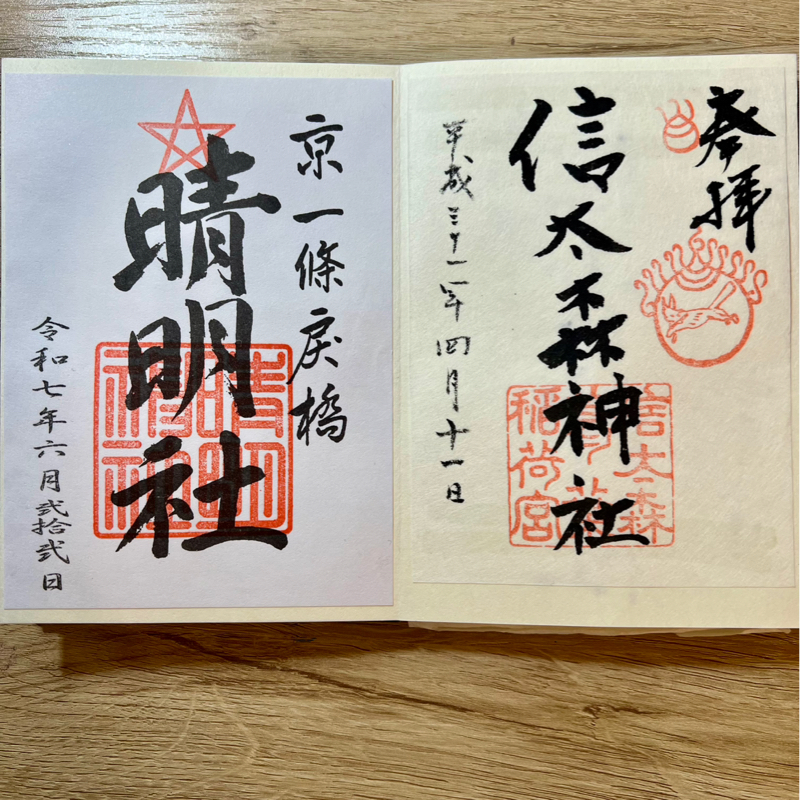 奉拝
信太森神社
平成三十一年四月十一日
信太森
稲荷宮
京一條戻橋
晴明社
令和七年六月弐拾弐日